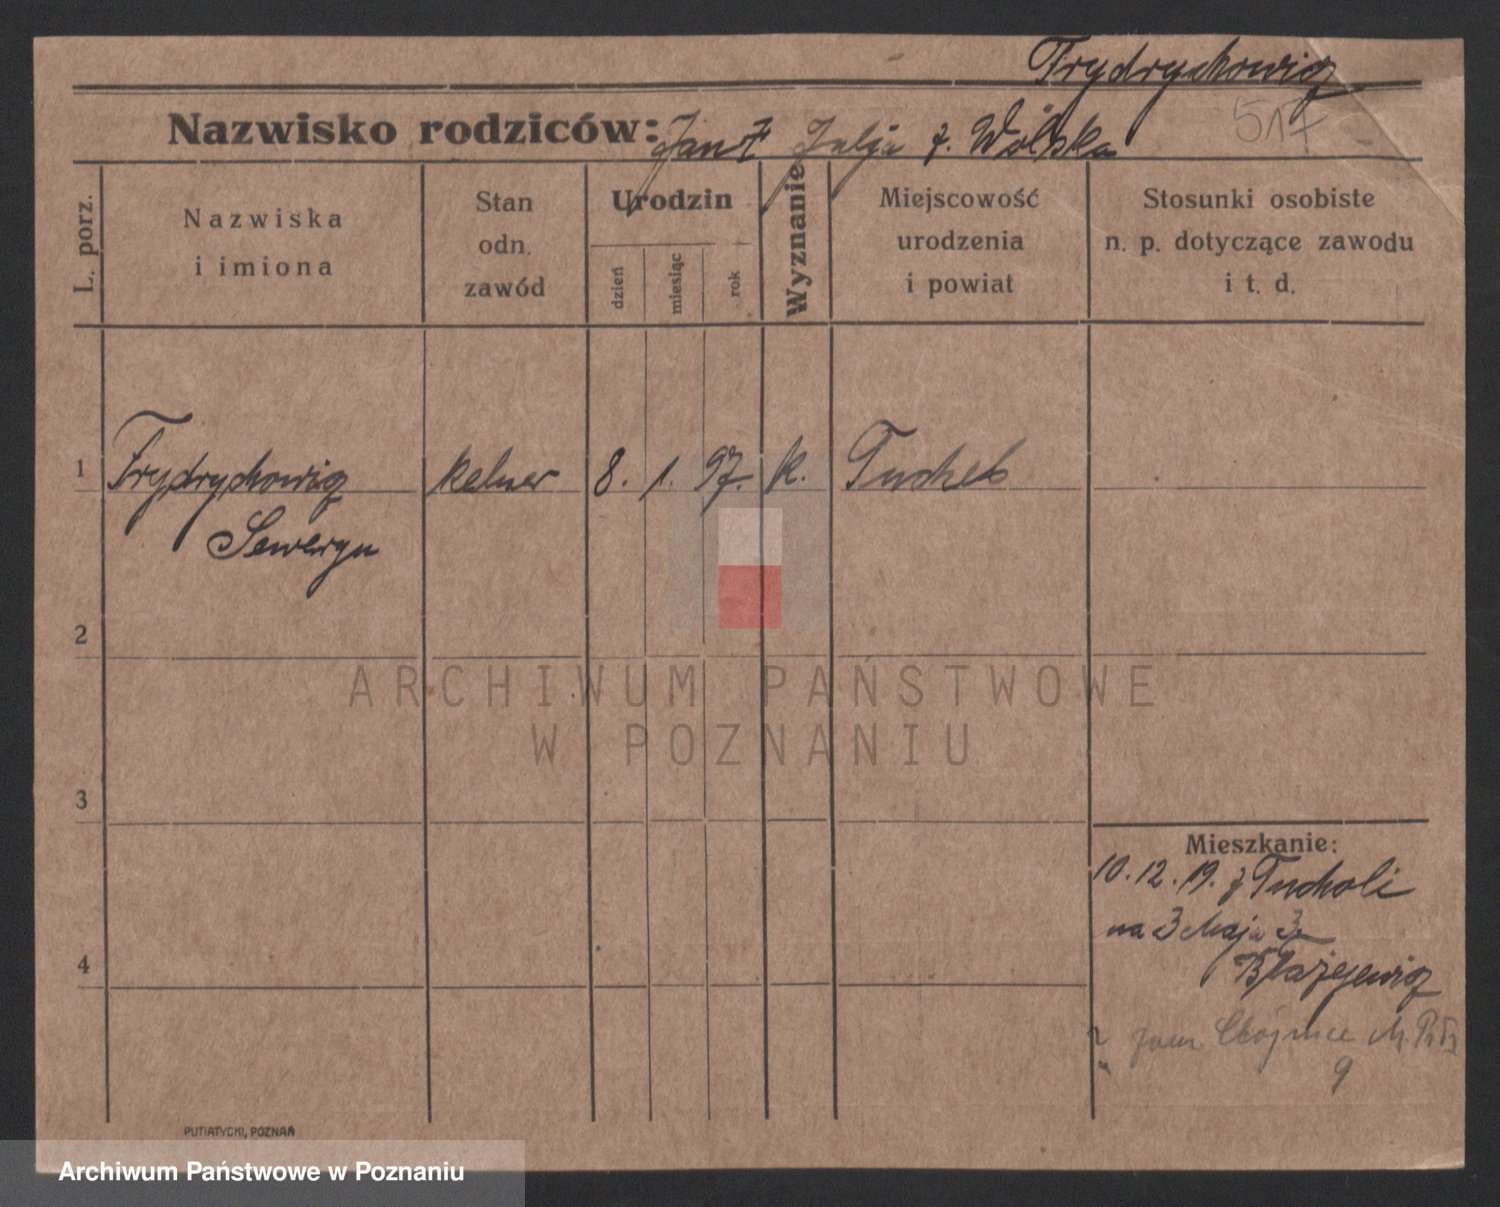 Frydrychowicz
517
Nazwisko rodziców: Jan † Julja z. Wolska
L. porz.
Nazwiska
i imiona
Stan
odn.
zawód
Urodzin
dzień
miesiąc
rok
Wyznanie
Miejscowość
urodzenia
i powiat
Stosunki osobiste
n. p. dotyczące zawodu
i t. d.
1 Frydrychowicz kelner 8. 1. 97. k. Tuchel
Seweryn
2
3
4
Mieszkanie:
10.12.19. z Tucholi
na 3 Maja 3a
Błażejewicz
zam. Chojnice
9
PUTIATYCKI, POZNAŃ
ARCHIWUM PAŃSTWOWE
W POZNANIU
Archiwum Państwowe w Poznaniu